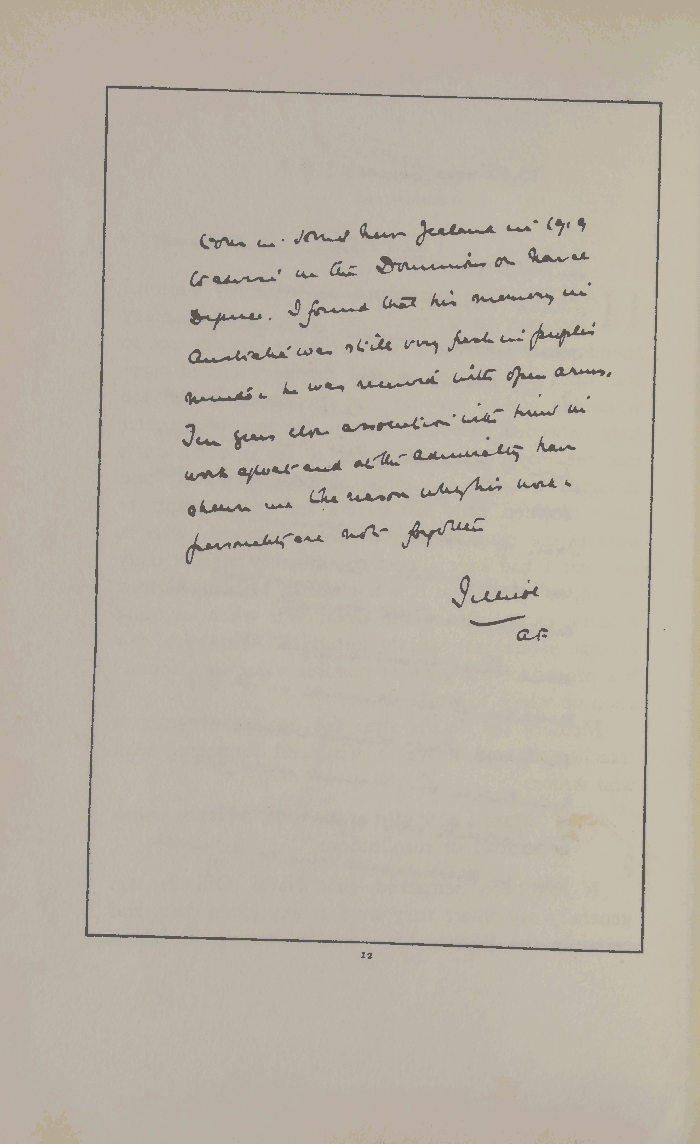 in 1919
in the Dominions on Naval
Defence. I found that his memory in
Australia was still very fresh in people's
minds & he was received with open arms.
Ten years close association with him in
work afloat and at the Admiralty have
shewn me the reason why his work &
personality are not forgotten
Jellicoe
AF
12